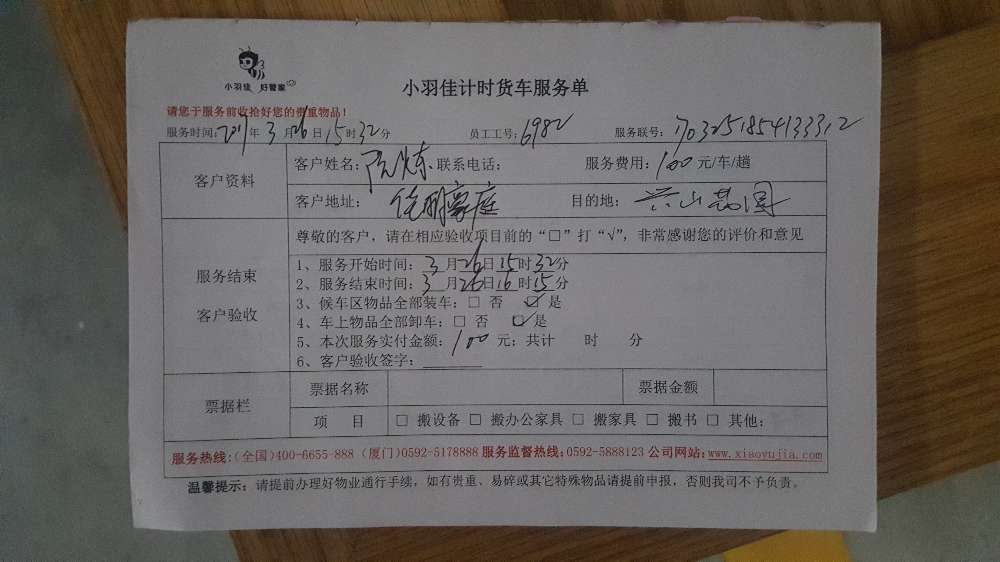 小羽佳 好管家
小羽佳计时货车服务单
请您于服务前收拾好您的贵重物品！
服务时间：2017年3月26日15时32分 员工工号：6982 服务联号：170325185413331 2
客户资料 客户姓名： 联系电话： 服务费用：100元/车/趟
客户地址：豪庭 目的地：
尊敬的客户，请在相应验收项目前的“□”打“√”，非常感谢您的评价和意见
服务结束
客户验收
1、服务开始时间：3月26日15时32分
2、服务结束时间：3月26日16时15分
3、候车区物品全部装车：□ 否 ☑ 是
4、车上物品全部卸车：□ 否 ☑ 是
5、本次服务实付金额：100元；共计 时 分
6、客户验收签字：
票据栏 票据名称 票据金额
项 目 □ 搬设备 □ 搬办公家具 □ 搬家具 □ 搬书 □ 其他：
服务热线：(全国)400-6655-888 (厦门)0592-5178888 服务监督热线：0592-5888123 公司网站：www.xiaoyujia.com
温馨提示：请提前办理好物业通行手续，如有贵重、易碎或其它特殊物品请提前申报，否则我司不予负责。